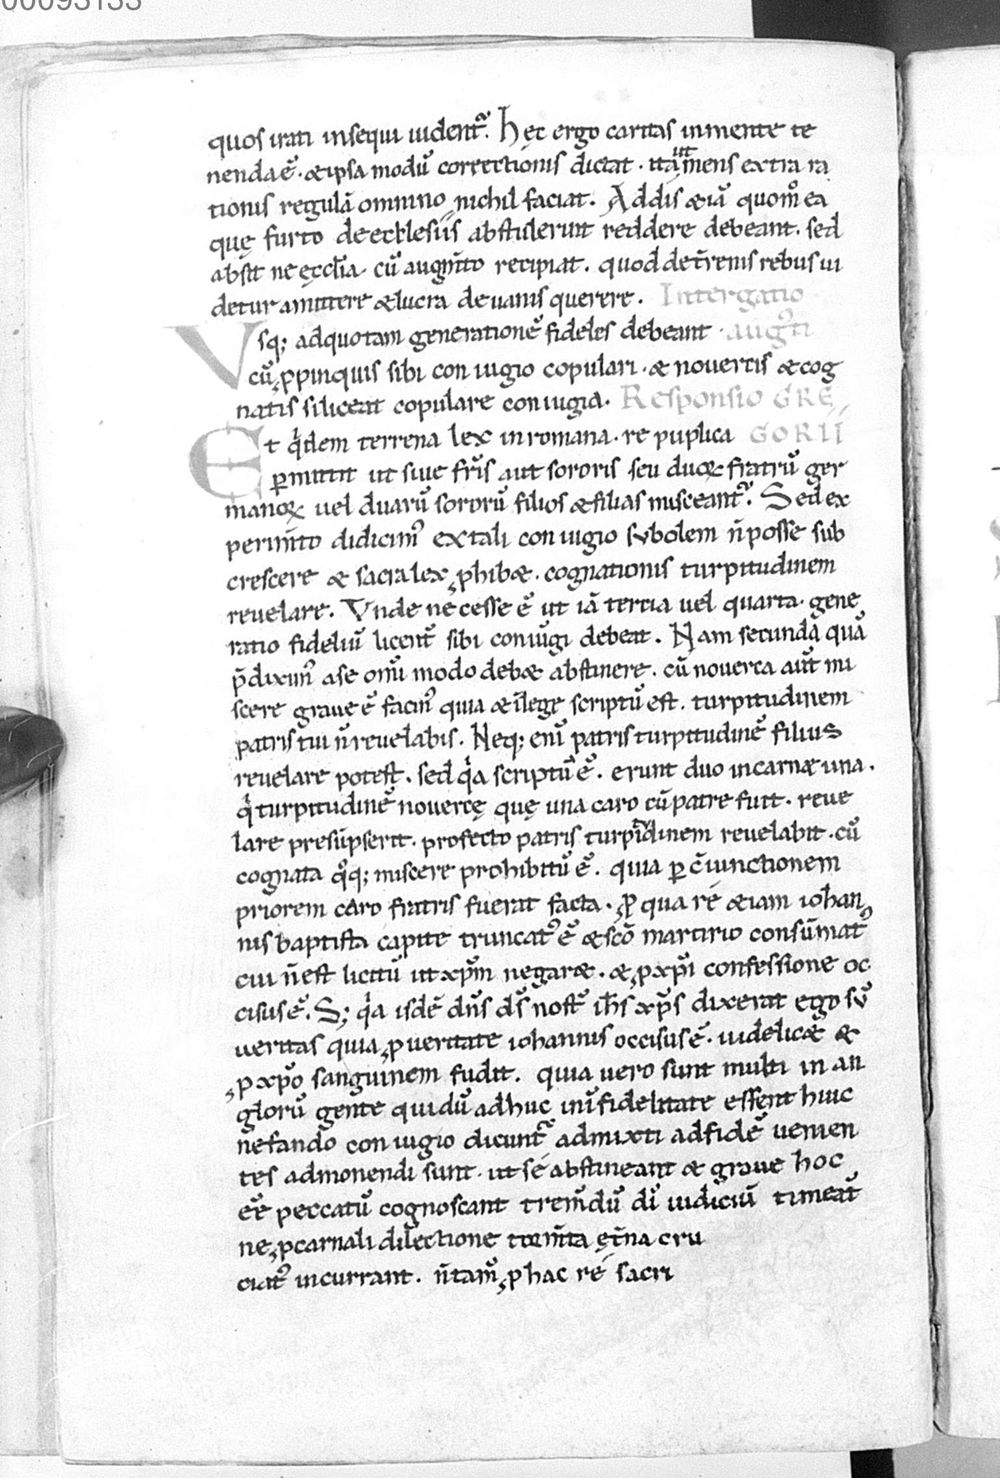 00093133
quos irati insequi uident᷑. hec ergo caritas in mente te
nenda ē. & ipsa modū correctionis dictat. ita ut mens extra ra
tionis regulā omnino nichil faciat. Addis & iā quom̊ ea
quę furto de ecclesiis abstulerunt reddere debeant. sed
absit ne ęccl̄ia cū augm̄to recipiat. quod de t̄renis rebus ui
detur amittere & lucra de uanis querere. Intergatio
Vsq; ad quotam generationē fideles debeant augᷤti
cū ꝓpinquis sibi coniugio copulari. & nouercis & cog
natis si liceat copulare coniugia. Responsio GRE
Et q̇dem terrena lex in romana. re puplica GORII
ꝑmittit ut siue fr̄is aut sororis seu duoꝝ fratrū ger
manoꝝ uel duarū sororū filios & filias misceant᷑. Sed ex
perim̄to didicimꝰ ex tali coniugio sobolem n̄ posse sub
crescere & sacra lex ꝓhib&. cognationis turpitudinem
reuelare. Vnde necesse ē ut iā tercia uel quarta gene
ratio fideliū licent̄ sibi coniūgi debeat. Nam secundā quā
p̄diximꝰ a se om̄i modo deb& abstinere. cū nouerca aūt mi
scere graue ē facinꝰ quia & ī lege scriptū est. turpitudinem
patris tui n̄ reuelabis. Neq; eni̅ patris turpitudinē filius
reuelare potest. sed q̇a scriptū ē. erunt duo in carn& una.
q̇ turpitudinē nouercę quę una caro cū patre fuit. reue
lare presūpserit. profecto patris turpitudinem reuelabit. cū
cognata qͦq; miscere prohibitū ē. quia ꝑ c̄iunctionem
priorem caro fratris fuerat facta. ꝓ qua rē & iam iohan
nis baptista capite truncatꝰ ē & sc̄o martirio consūmatꝰ
cui n̄ est licitū ut xp̄m negar&. & ꝓ xp̄i confessione oc
cisus ē. S; q̇a isdē dn̄s ds̄ nost̄ ih̄s xp̄s dixerat ego sū
ueritas quia ꝓ ueritate iohannis occisus ē. uidelic& &
ꝓ xp̄o sanguinem fudit. quia uero sunt multi in an
glorū gente qui dū adhuc in īfidelitate essent huic
nefando coniugio dicunt᷑ admixti ad fidē uenien
tes admonendi sunt. ut se abstineant & graue hoc
ēē peccatū cognoscant trem̄dū dī iudiciū timeāt
ne ꝓ carnali dilectione torm̄ta ęt̄na cru
ciatꝰ incurrant. n̄ tam̄ ꝓ hac rē sacri